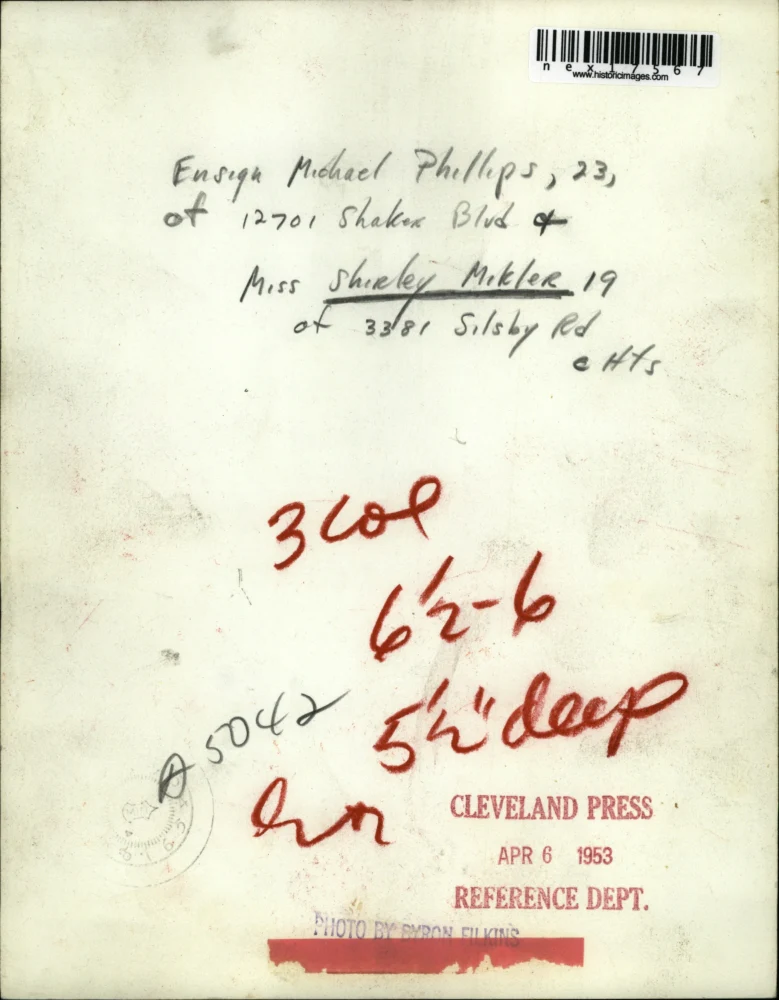 nex17567
www.historicimages.com
Ensign Michael Phillips, 23,
of 12701 Shaker Blvd &
Miss Shirley Mikler 19
of 3381 Silsby Rd
c Hts
3 col
6 1/2 - 6
5 1/2" deep
A 5042
CLEVELAND PRESS
APR 6 1953
REFERENCE DEPT.
PHOTO BY BYRON FILKINS